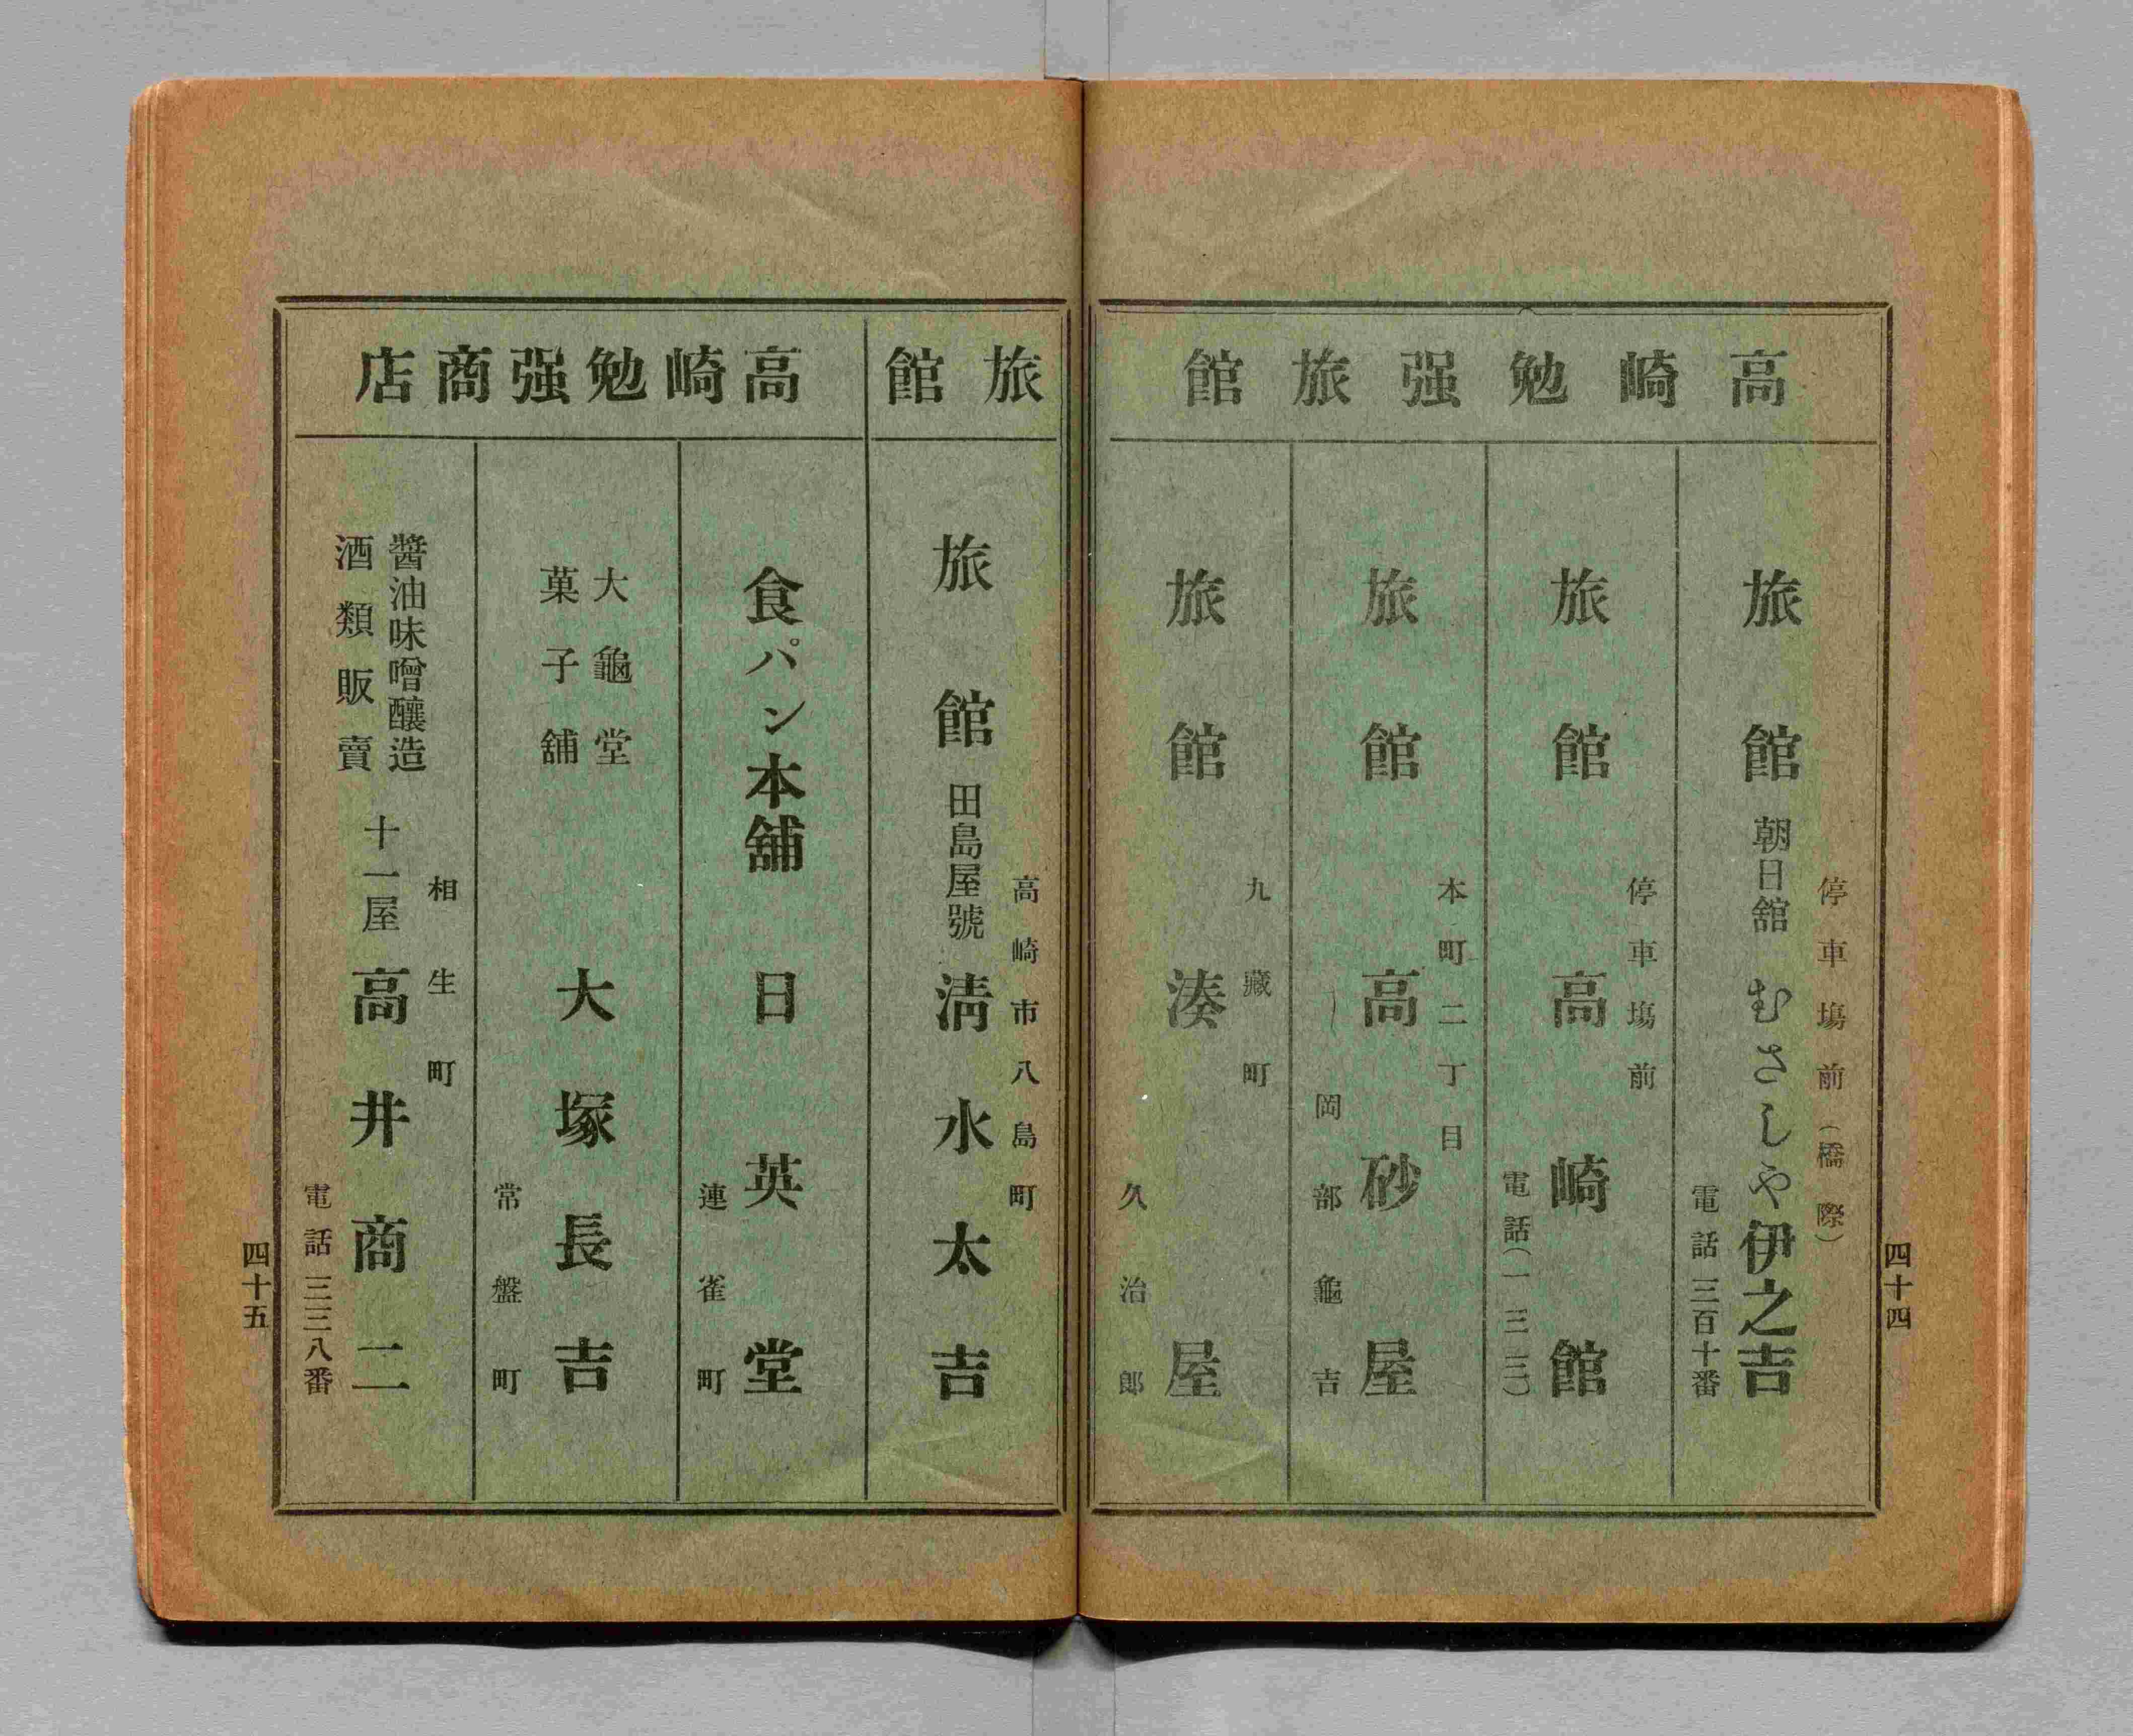 高崎勉强旅館
停車塲前（橋際）
旅館 朝日舘 むさしや伊之吉
電話三百十番
停車塲前
旅館 高崎館
電話（一三三）
本町二丁目
旅館 高砂屋
岡部龜吉
九藏町
旅館 湊屋
久治郎
四十四
旅館
高崎市八島町
旅館 田島屋號 淸水太吉
高崎勉强商店
食パン本舖 日英堂
連雀町
大龜堂
菓子舖
大塚長吉
常盤町
相生町
醬油味噌釀造
酒類販賣
十一屋 高井商二
電話三三八番
四十五